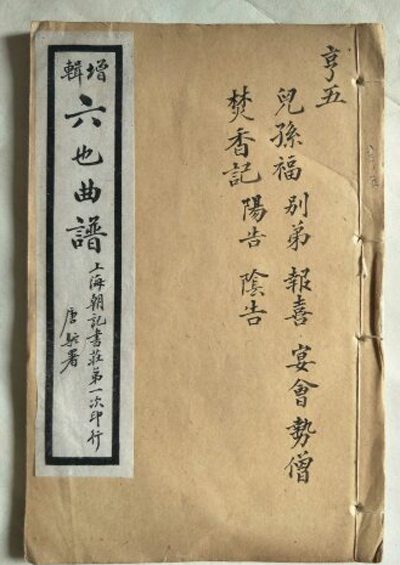 亨五
兒孫福 別弟 報喜 宴會 勢僧
焚香記 陽告 陰告
增輯
六也曲譜
上海朝記書莊第一次印行
唐駝署